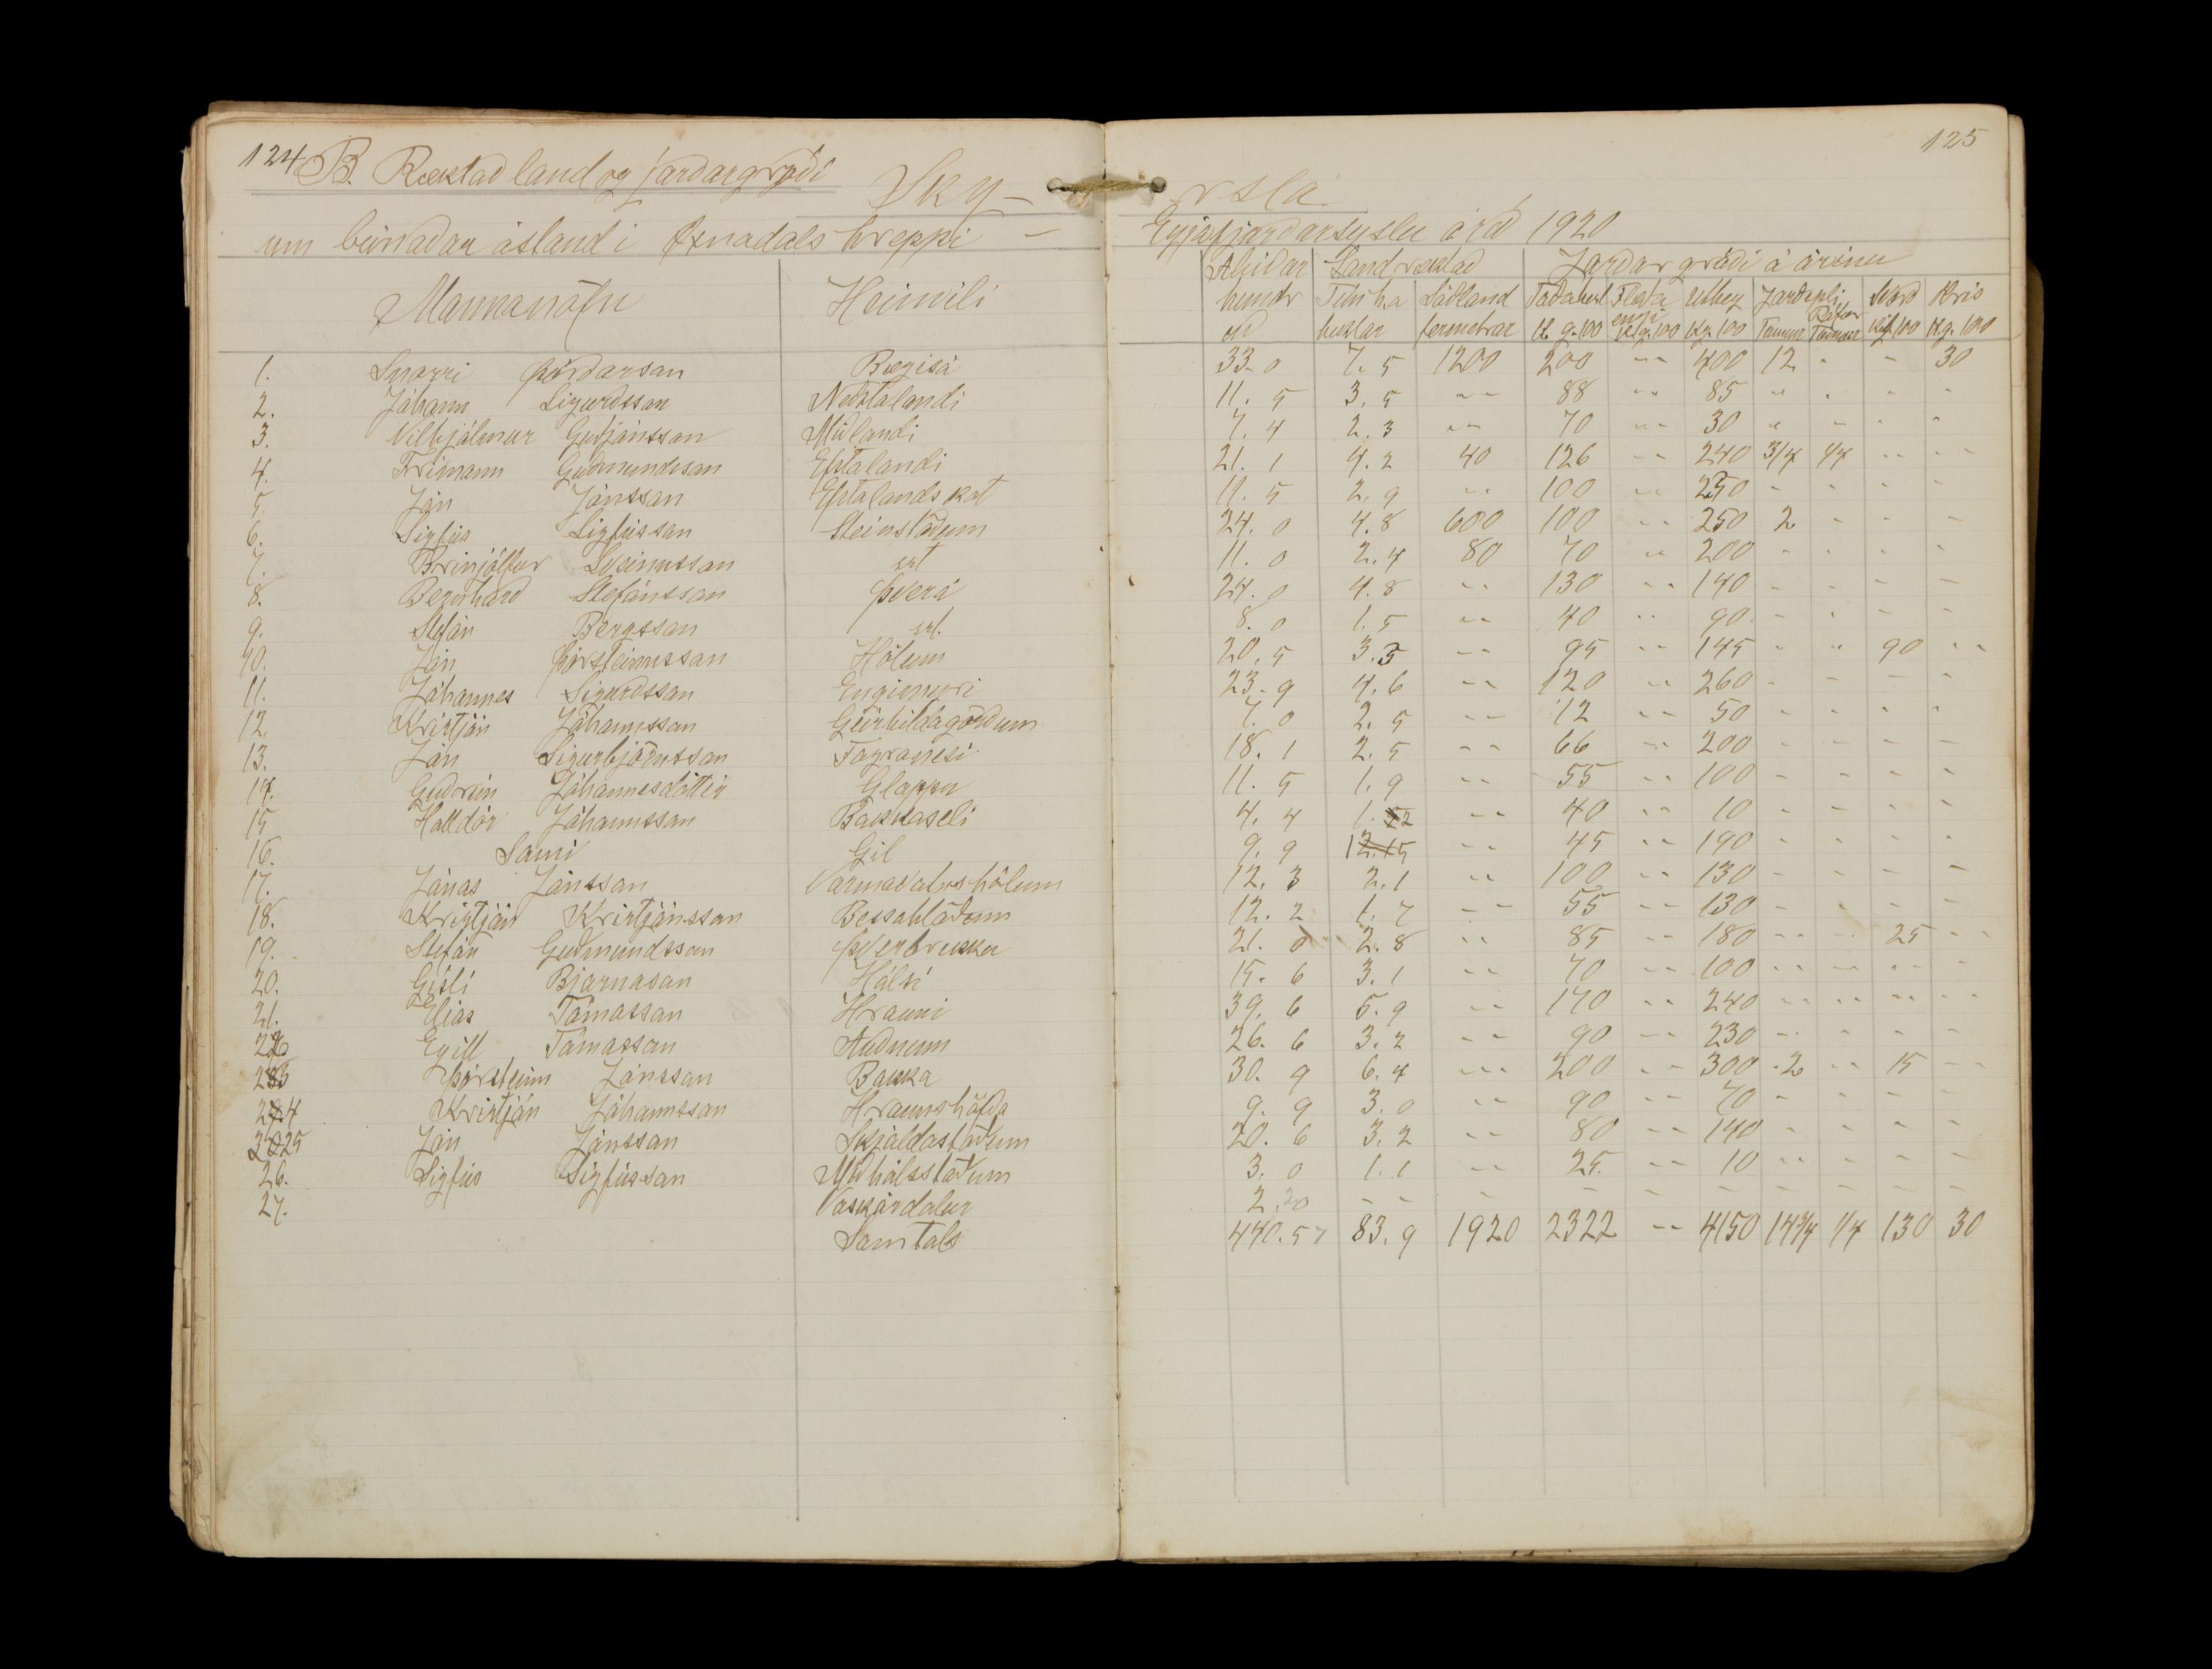 124 B. Ræktað land og jarðargróði Ský-
125
rsla
um búnaðar ástand i Öxnadals hreppi -
Eyjafjarðarsýslu árið 1920
Mannanöfn Heimili
Ábúðar Land ræktað Jarðar gróði á árinu
hundr Tún ha Sáðland Taðahest Flæða engi Úthey Jarðepli Rófur Svörð Hris
uð hektar fermetrar K g. 100 K g. 100 Kg. 100 Tunnur Tunnur Kg 100 K.g. 100
1. Snorri Þórdarson Bægisá 33.0 7.5 1200 200 -- 400 12 - - 30
2. Jóhann Sigurdsson Neðstalandi 11.5 3.5 -- 88 -- 85 - - - -
3. Vilhjálmur Guðjónsson Miðlandi 7.4 2.3 -- 70 -- 30 - - - -
4. Frimann Guðmundsson Efstalandi 21.1 4.2 40 126 -- 240 3/4 1/4 -- --
5. Jón Jónsson Efstalandskot 11.5 2.9 -- 100 -- 250 - - - -
6. Sigfús Sigfússon Steinstöðum 24.0 4.8 600 100 -- 250 2 - - -
7. Brinjólfur Sveinsson sst 11.0 2.4 80 70 -- 200 - - - -
8. Bernharð Stefánsson Þverá 24.0 4.8 -- 130 -- 140 - - - -
9. Stefán Bergsson sst. 8.0 1.5 -- 40 -- 90 - - - -
10. Jón Þorsteinsson Hólum 20.5 3.5 -- 95 -- 145 - - 90 --
11. Jóhannes Sigurdsson Engimyri 23.9 4.6 -- 120 -- 260 - - - -
12. Kristján Jóhannsson Geirhildagörðum 7.0 2.5 -- 12 -- 50 - - - -
13. Jón Sigurbjörnsson Fagranesi 18.1 2.5 -- 66 -- 200 - - - -
14. Guðrún Jóhannesdóttir Gloppu 11.5 1.9 -- 55 -- 100 - - - -
15 Halldór Jóhannsson Bakkaseli 4.4 1.2 -- 40 -- 10 - - - -
16. Sami Gil 9.9 -- 45 -- 190 - - - -
17. Jónas Jónsson Varmavatnshólum 12.3 2.1 -- 100 -- 130 - - - -
18. Kristján Kristjánsson Bessahlöðum 12.2 1.7 -- 55 -- 130 - - - -
19. Stefán Guðmundsson Þverbrekka 21.0 2.8 -- 85 -- 180 -- -- 25 --
20. Gísli Bjarnason Hálsi 15.6 3.1 -- 70 -- 100 -- -- -- --
21. Elias Tómasson Hrauni 39.6 5.9 -- 170 -- 240 -- -- -- --
22 Egill Tómasson Auðnum 26.6 3.2 -- 90 -- 230 -- - - -
23 Þórsteinn Jónsson Bakka 30.9 6.4 -- 200 -- 300 2 -- 15 --
24 Kristján Jóhannsson Hraunshöfða 9.9 3.0 -- 90 -- 70 - - - -
25 Jón Jónsson Skjaldastöðum 20.6 3.2 -- 80 -- 140 - - - -
26. Sigfús Sigfússon Miðhálsstöðum 3.0 1.1 -- 25. -- 10 -- - - -
27. Vaskárdalur 2.20 -- - - - - - - - -
Samtals 440.57 83.9 1920 2322 -- 4150 14 3/4 1/4 130 30